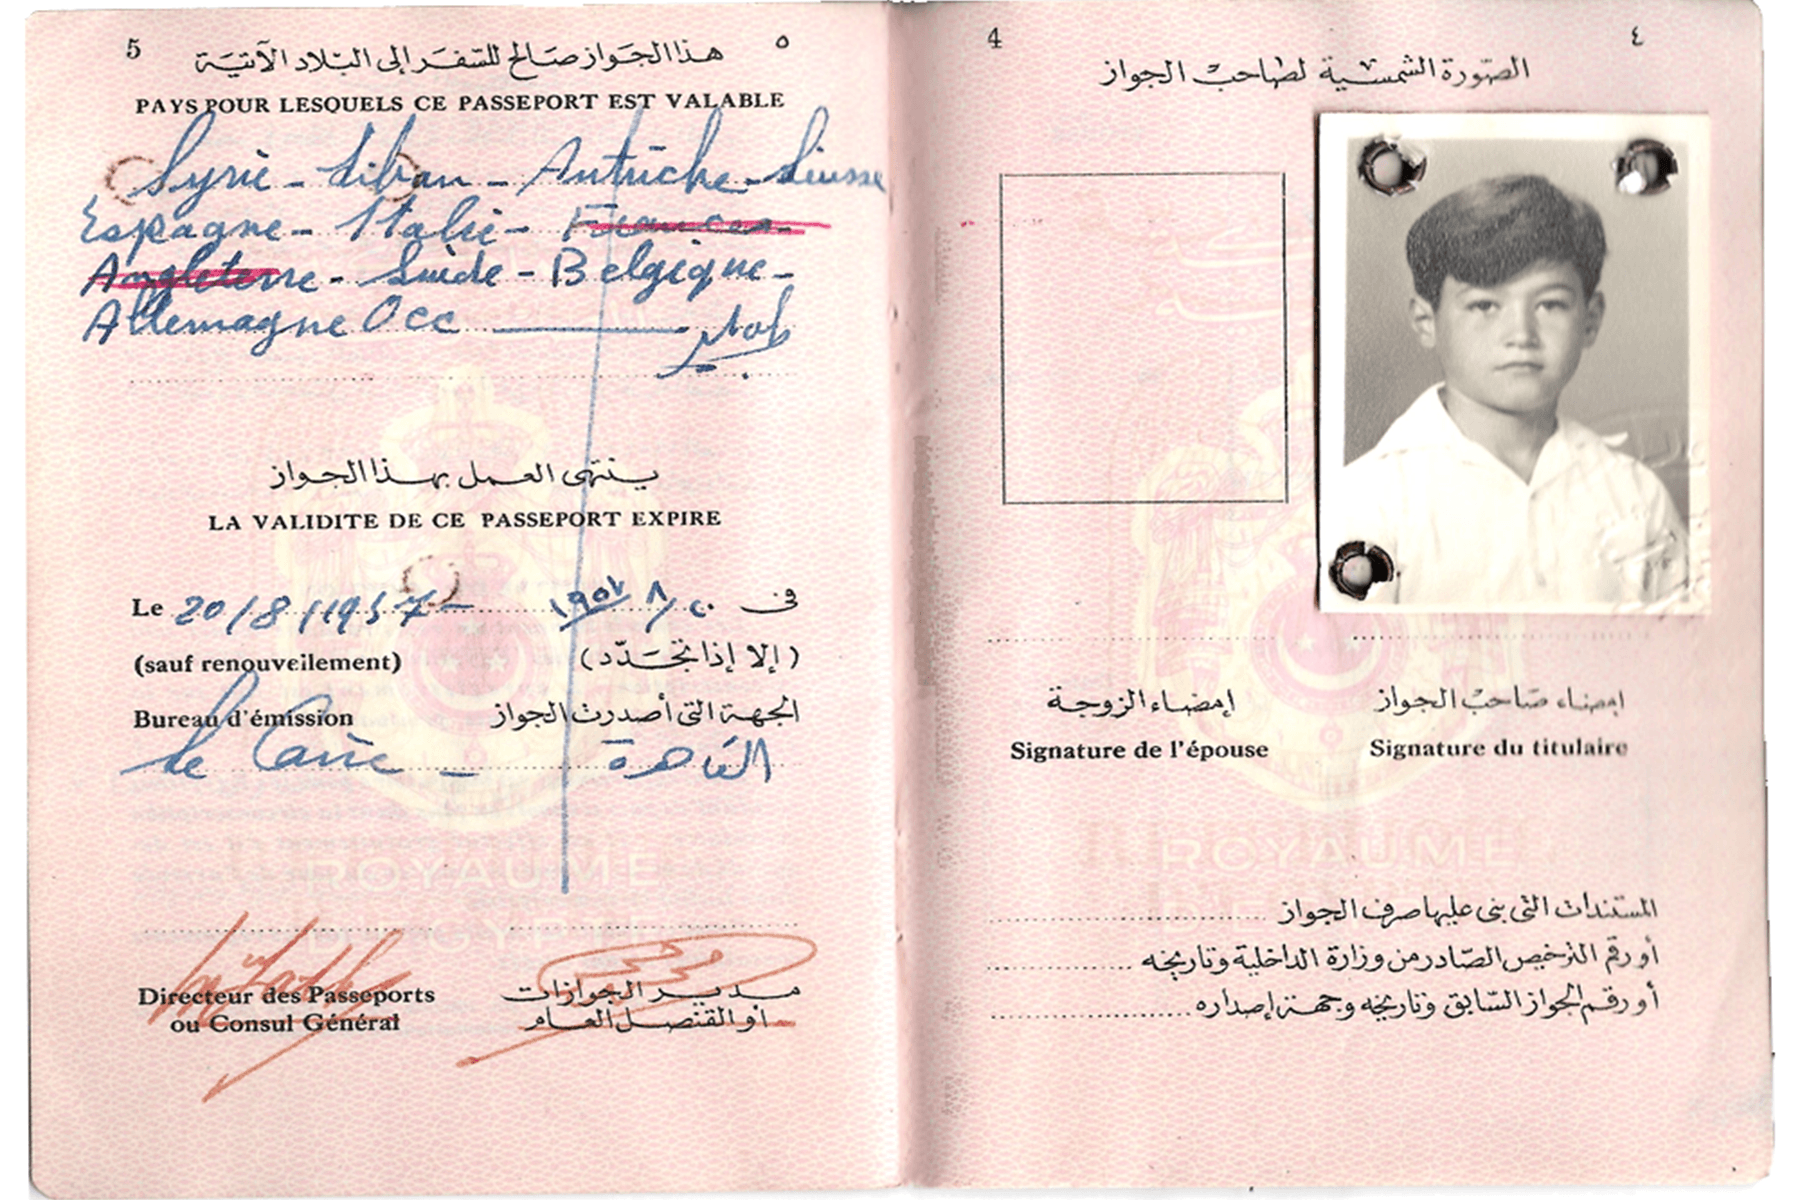 5 ٥
هذا الجواز صالح للسفر إلى البلاد الآتية
PAYS POUR LESQUELS CE PASSEPORT EST VALABLE
Syrie - Liban - Autriche - Suisse
Espagne - Italie -
Angleterre - Suède - Belgique -
Allemagne Occ
ينتهى العمل بهذا الجواز
LA VALIDITE DE CE PASSEPORT EXPIRE
Le 20/8/1957 - ١٩٥٧/٨/٢٠ فى
(sauf renouvellement) (إلا إذا تجدّد)
Bureau d'émission الجهة التى أصدرت الجواز
Le Caire - القاهرة
ROYAUME
D'EGYPTE
Directeur des Passeports مدير الجوازات
ou Consul Général أو القنصل العام
4 ٤
الصورة الشمسية لصاحب الجواز
إمضاء الزوجة إمضاء صاحب الجواز
Signature de l'épouse Signature du titulaire
ROYAUME
المستندات التى بنى عليها صرف الجواز
أو رقم الترخيص الصادر من وزارة الداخلية وتاريخه
أو رقم الجواز السابق وتاريخه وجهة إصداره